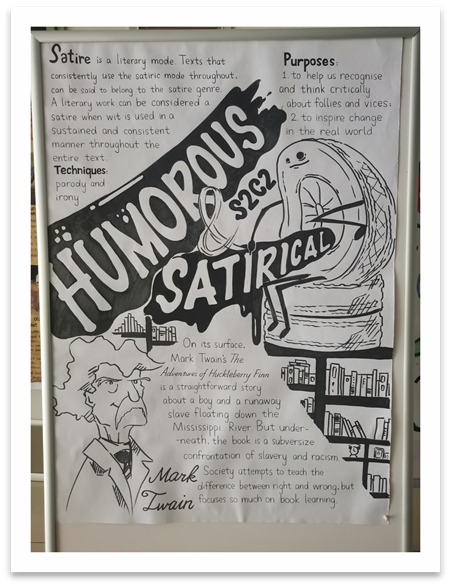 Satire is a literary mode. Texts that
consistently use the satiric mode throughout,
can be said to belong to the satire genre.
A literary work can be considered a
satire when wit is used in a
sustained and consistent
manner throughout the
entire text.
Techniques:
parody and
irony
Purposes:
1. to help us recognise
and think critically
about follies and vices;
2 to inspire change
in the real world.
HUMOROUS
&
S2G2
SATIRICAL
On its surface,
Mark Twain's The
Adventures of Huckleberry Finn
is a straightforward story
about a boy and a runaway
slave floating down the
Mississippi River. But under-
-neath, the book is a subversize
confrontation of slavery and racism.
Society attempts to teach the
difference between right and wrong, but
focuses so much on book learning.
Mark
Twain